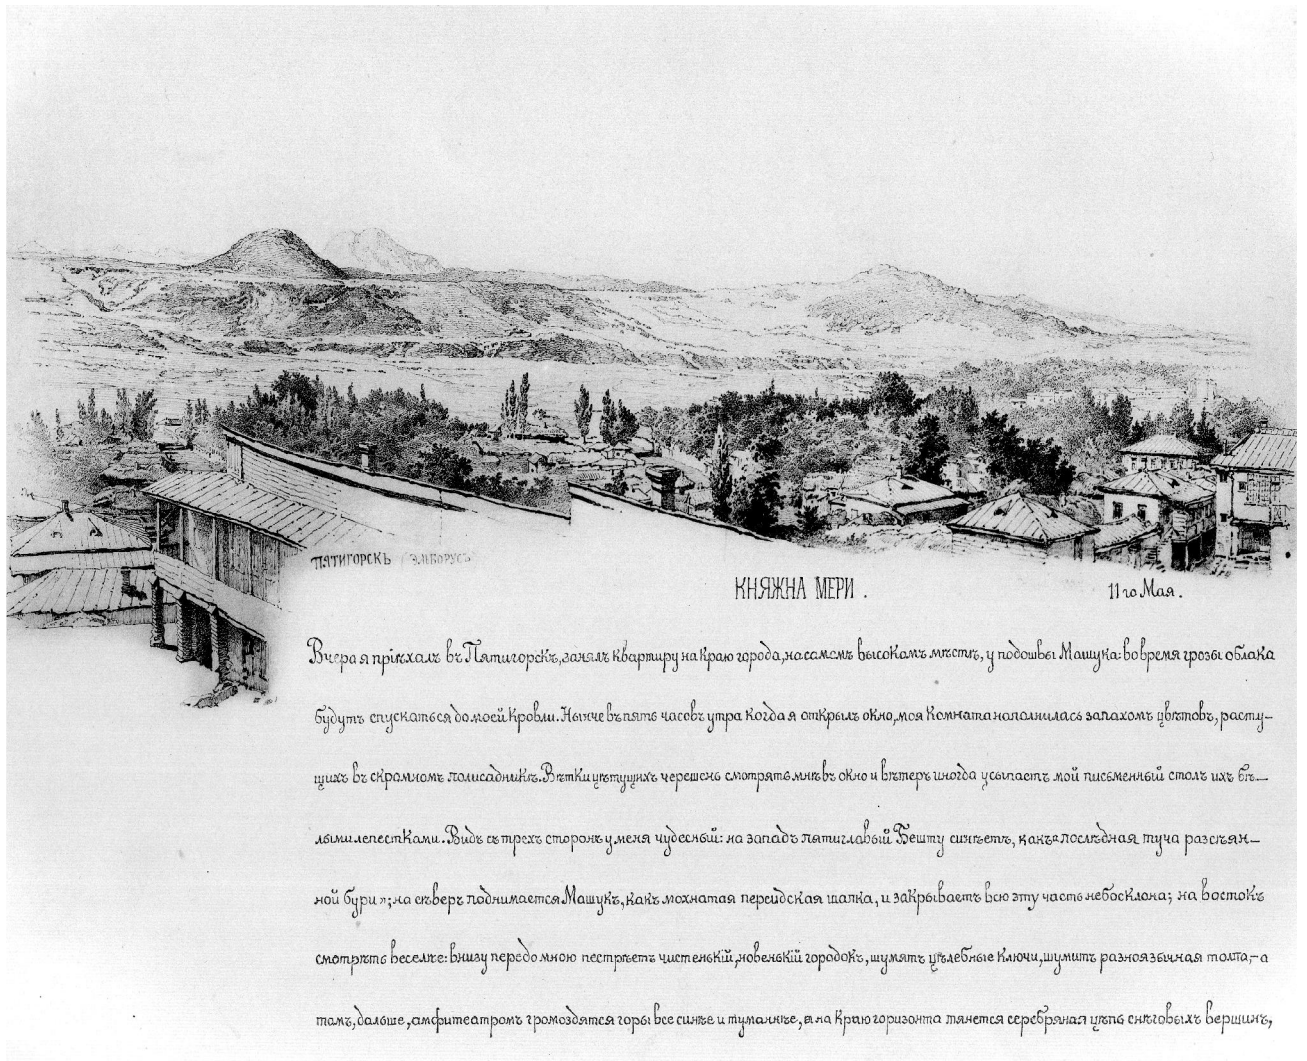 ПЯТИГОРСКЪ (ЭЛЬБОРУСЪ
КНЯЖНА МЕРИ.
11го Мая.
Вчера я пріѣхалъ въ Пятигорскъ, занялъ квартиру на краю города, на самомъ высокомъ мѣстѣ, у подошвы Машука: во время грозы облака
будутъ спускаться до моей кровли. Нынче въ пять часовъ утра когда я открылъ окно, моя комната наполнилась запахомъ цвѣтовъ, расту–
щихъ въ скромномъ полисадникѣ. Вѣтки цвѣтущихъ черешень смотрятъ мнѣ въ окно и вѣтеръ иногда усыпаетъ мой письменный столъ ихъ бѣ—
лыми лепестками. Видъ съ трехъ сторонъ у меня чудесный: на западъ пятиглавый Бешту синѣетъ, какъ „послѣдная туча разсѣян—
ной бури“; на сѣверъ поднимается Машукъ, какъ мохнатая персидская шапка, и закрываетъ всю эту часть небосклона; на востокъ
смотрѣть веселѣе: внизу передо мною пестрѣетъ чистенькій, новенькій городокъ, шумятъ цѣлебные ключи, шумитъ разноязычная толпа,–а
тамъ, дальше, амфитеатромъ громоздятся горы все синѣе и туманнѣе, а на краю горизонта тянется серебряная цѣпь снѣговыхъ вершинъ,